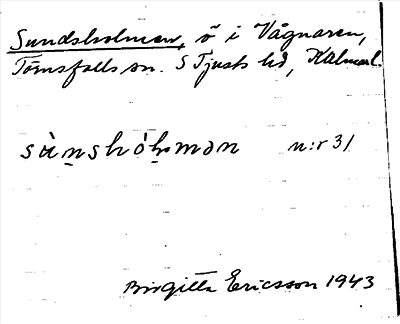 Sundsholmen, ö i Vågnaren,
Törnsfalls sn. S Tjusts hd, Kalmar l.
sùnshólman n:r 31
Birgitta Ericsson 1943